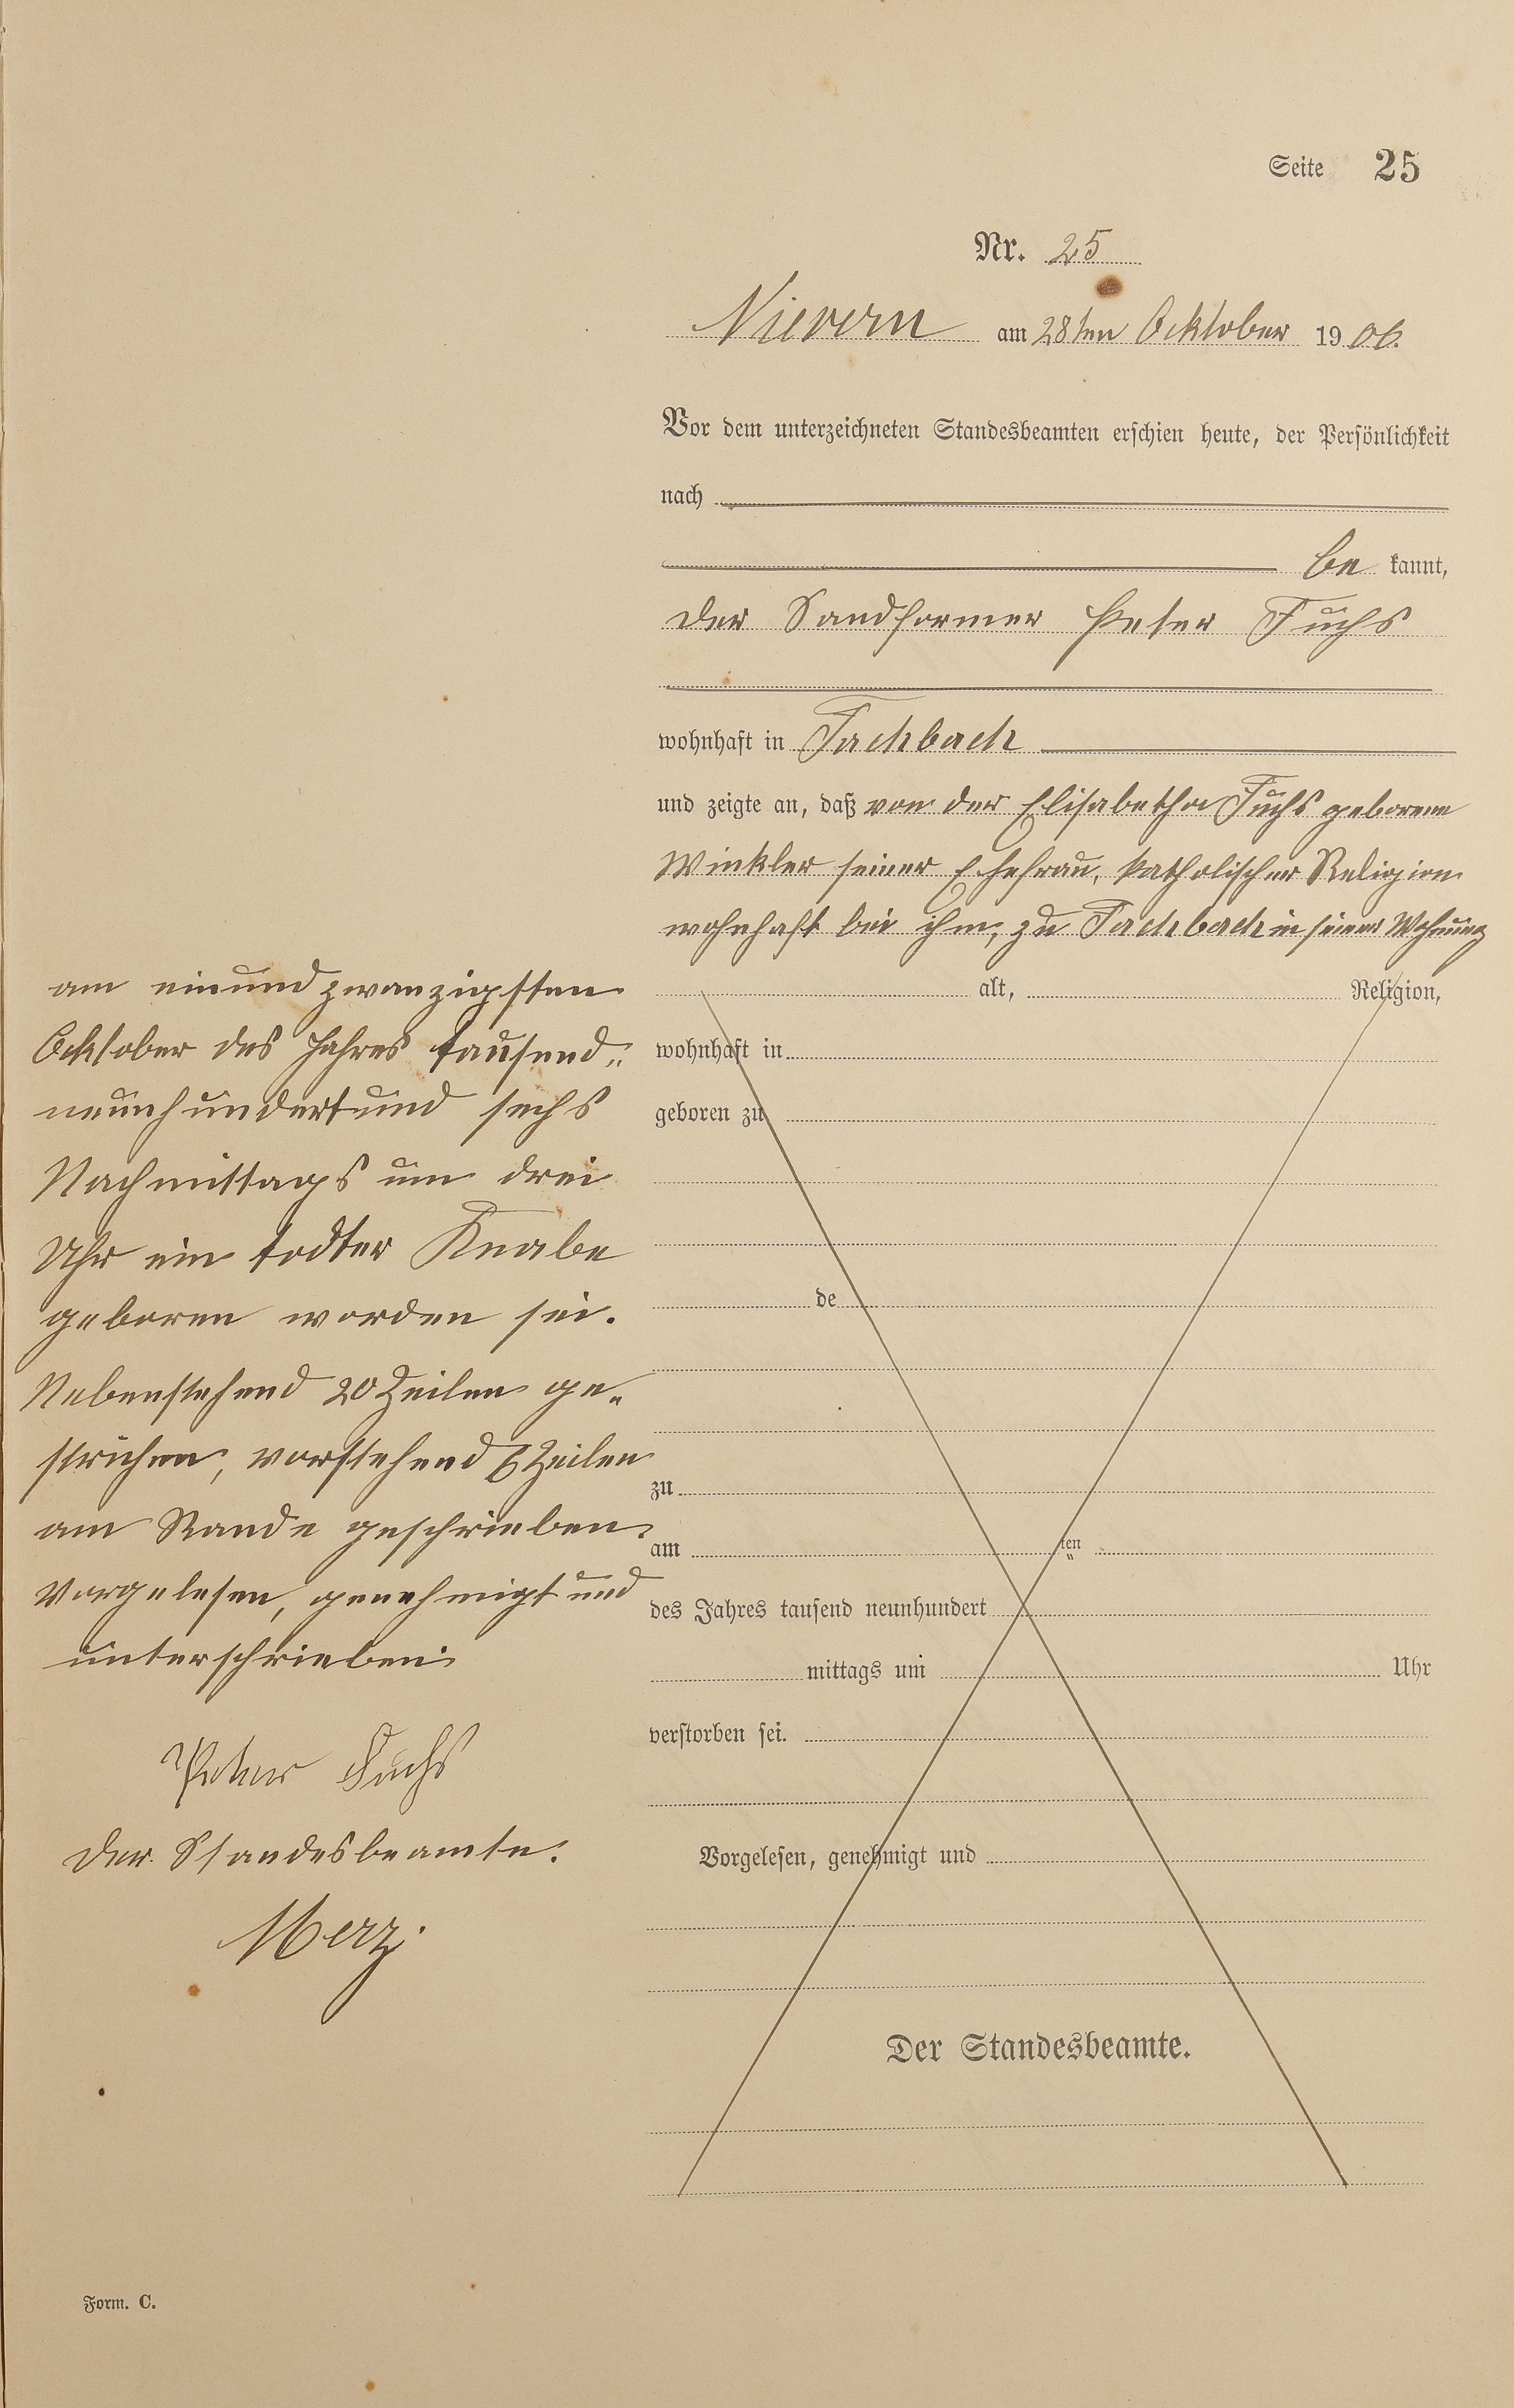 Seite 25
Nr. 25
Nievern am 28ten Ocktober 1906.
Vor dem unterzeichneten Standesbeamten erschien heute, der Persönlichkeit
nach
be kannt,
der Sandformer Peter Fuchs
wohnhaft in Fachbach
und zeigte an, daß von der Elisabetha Fuchs geborene
Winkler seiner Ehefrau, katholischer Religion
wohnhaft bei ihm, zu Fachbach in seiner Wohnung
am einund zwanzigsten
Ocktober des Jahres tausend„
neunhundertund sechs
Nachmittags um drei
Uhr ein todter Knabe
geboren worden sei.
Nebenstehend 20 Zeilen ge„
strichen, vorstehend 6 Zeilen
am Rande geschrieben.
Vorgelesen, genehmigt und
unterschrieben
Peter Fuchs
Der Standesbeamte.
Merz.
alt, Religion,
wohnhaft in
geboren zu
de
zu
am ten
des Jahres tausend neunhundert
mittags um Uhr
verstorben sei.
Vorgelesen, genehmigt und
Der Standesbeamte.
Form. C.